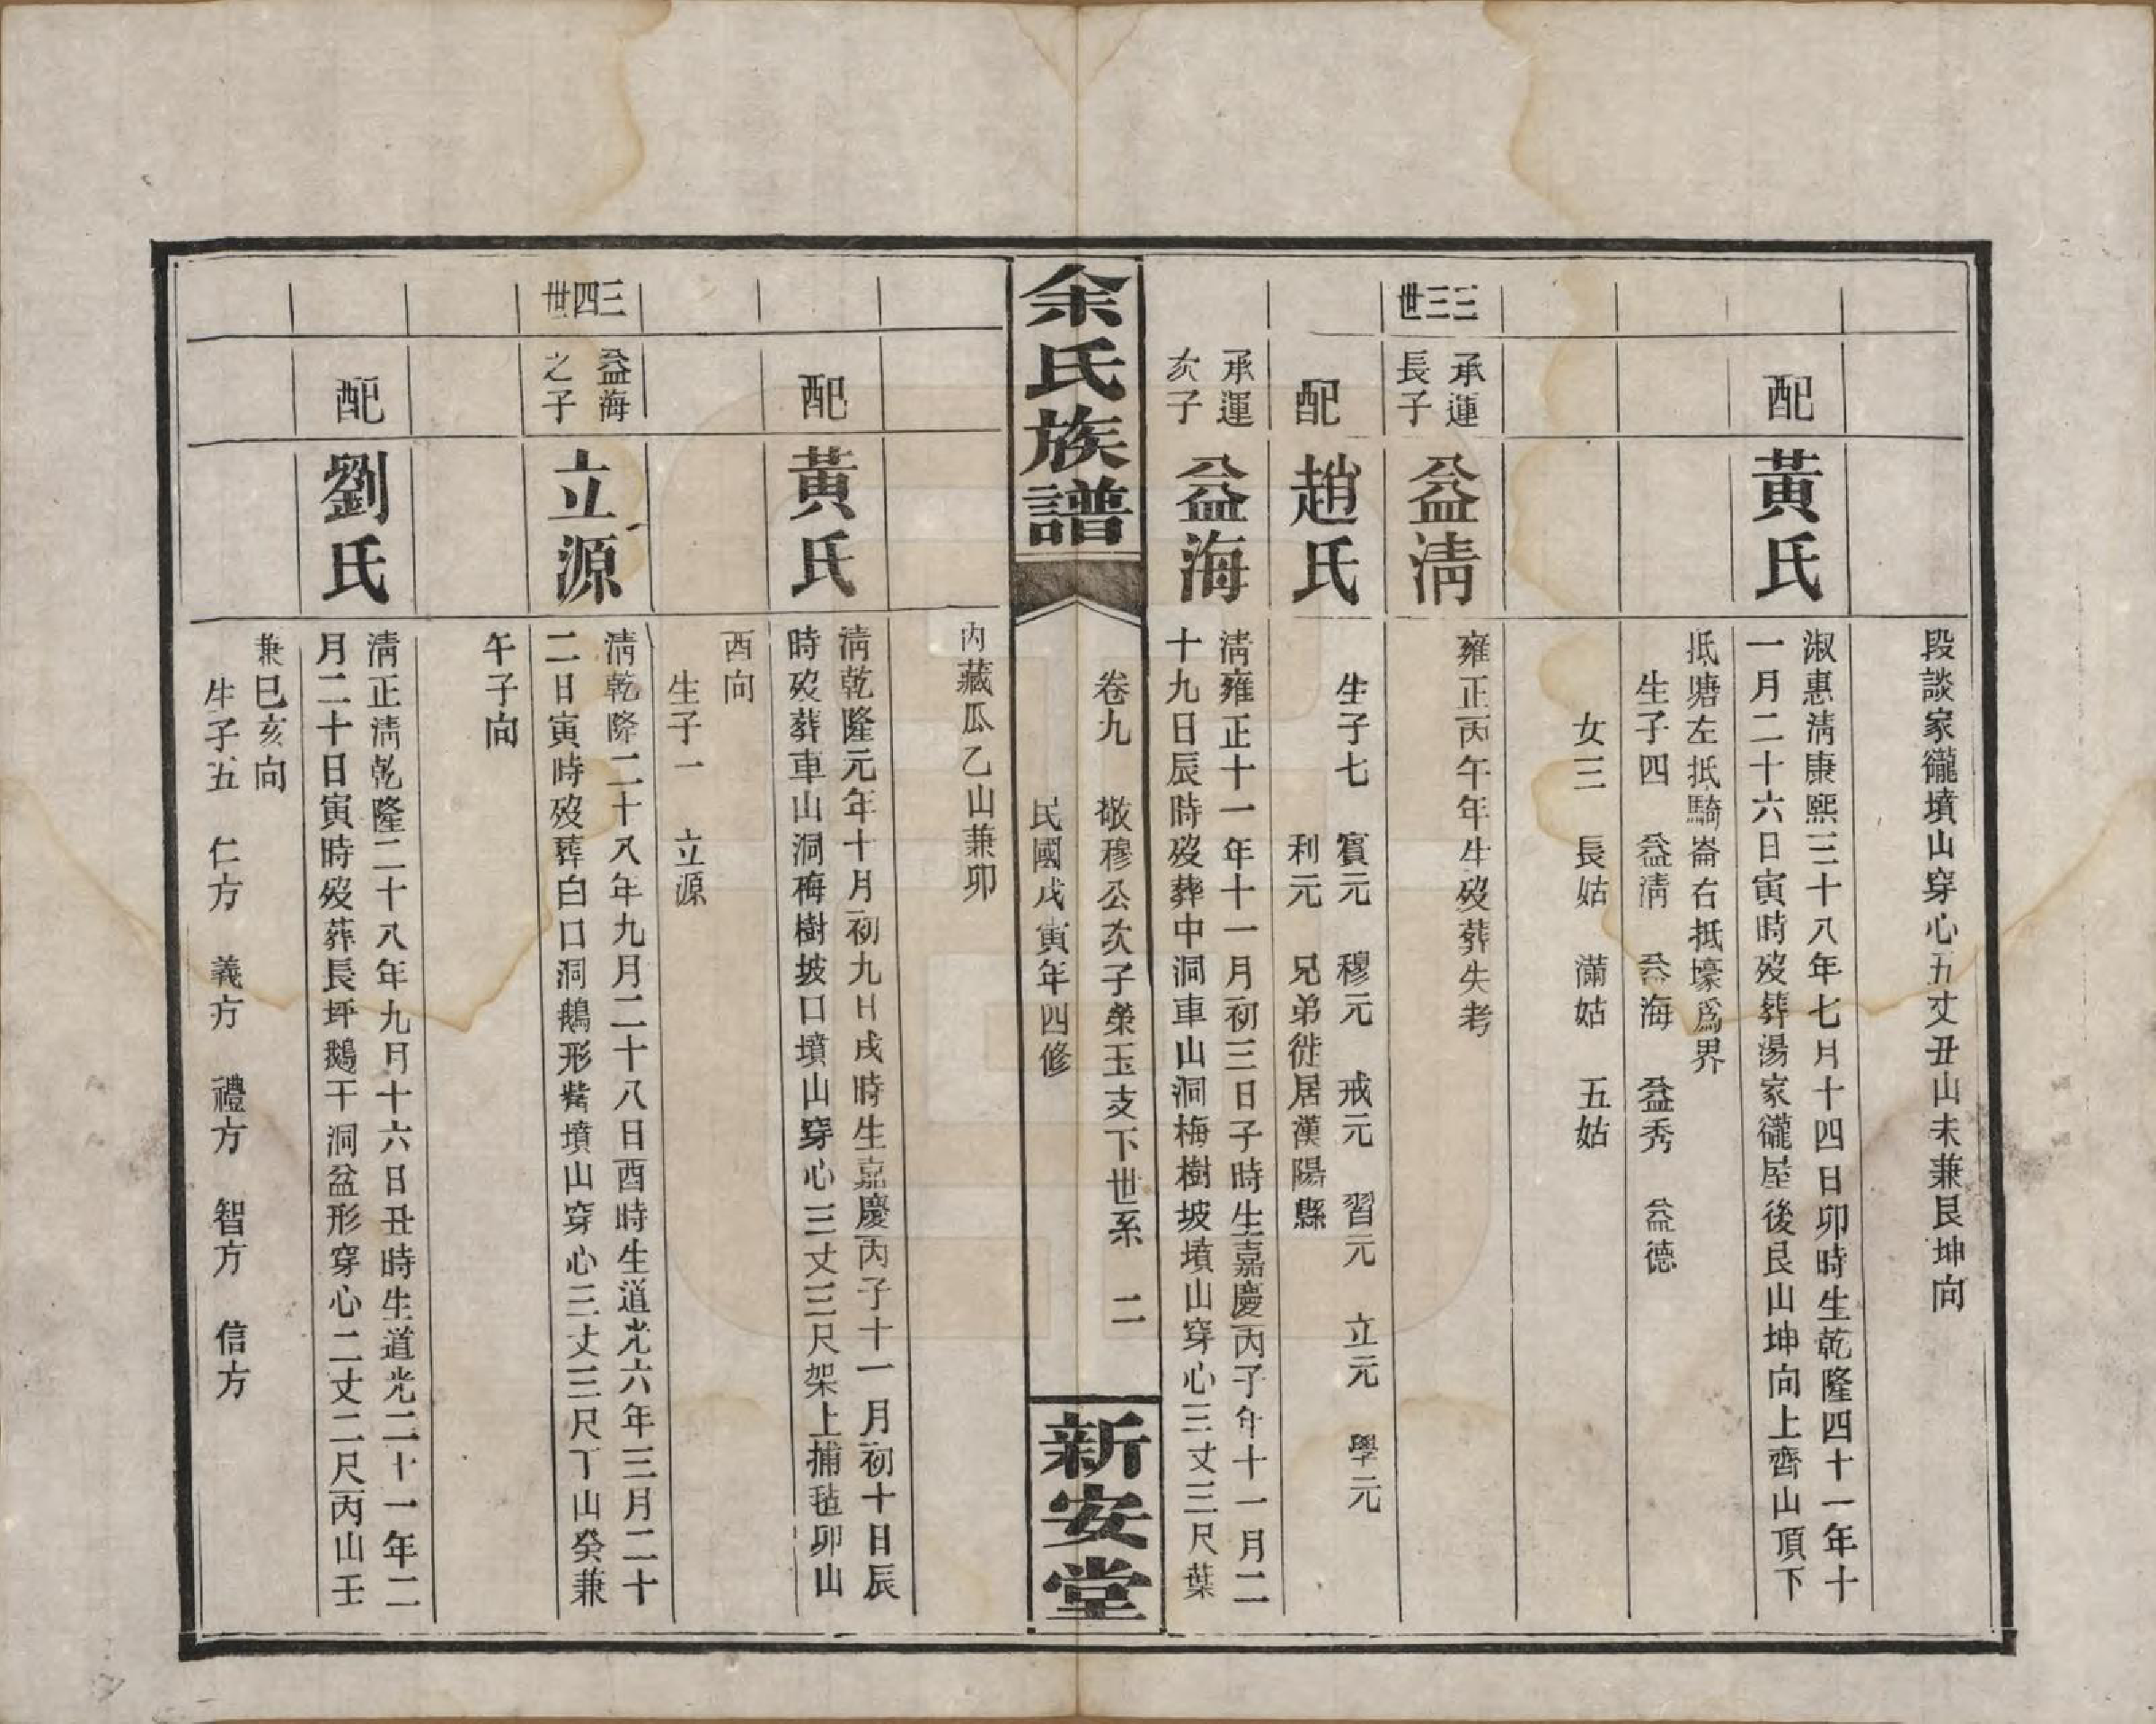 段談家㠣墳山穿心五丈丑山未兼艮坤向
配
黃氏
淑惠淸康熙三十八年七月十四日卯時生乾隆四十一年十
一月二十六日寅時歿葬湯家㠣屋後艮山坤向上齊山頂下
抵塘左抵騎崙右抵壕爲界
生子四 益淸 益海 益秀 益德
女三 長姑 滿姑 五姑
三三世
承運
長子
益淸
雍正丙午年生歿葬失考
配
趙氏
生子七 賓元 穆元 戒元 習元 立元 學元
利元 兄弟徙居漢陽縣
承運
次子
益海
淸雍正十一年十一月初三日子時生嘉慶丙子年十一月二
十九日辰時歿葬中洞車山洞梅樹坡墳山穿心三丈三尺葉
余氏族譜
卷九 敬穆公次子榮玉支下世系 二
民國戊寅年四修
新安堂
內藏瓜乙山兼卯
配
黃氏
淸乾隆元年十月初九日戌時生嘉慶丙子十一月初十日辰
時歿葬車山洞梅樹坡口墳山穿心三丈三尺架上捕毡卯山
酉向
生子一 立源
三四世
益海
之子
立源
淸乾隆二十八年九月二十八日酉時生道光六年三月二十
二日寅時歿葬白口洞鵝形觜墳山穿心三丈三尺丁山癸兼
午子向
配
劉氏
淸正淸乾隆二十八年九月十六日丑時生道光二十一年二
月二十日寅時歿葬長坪鵝干洞盆形穿心二丈二尺丙山壬
兼巳亥向
生子五 仁方 義方 禮方 智方 信方